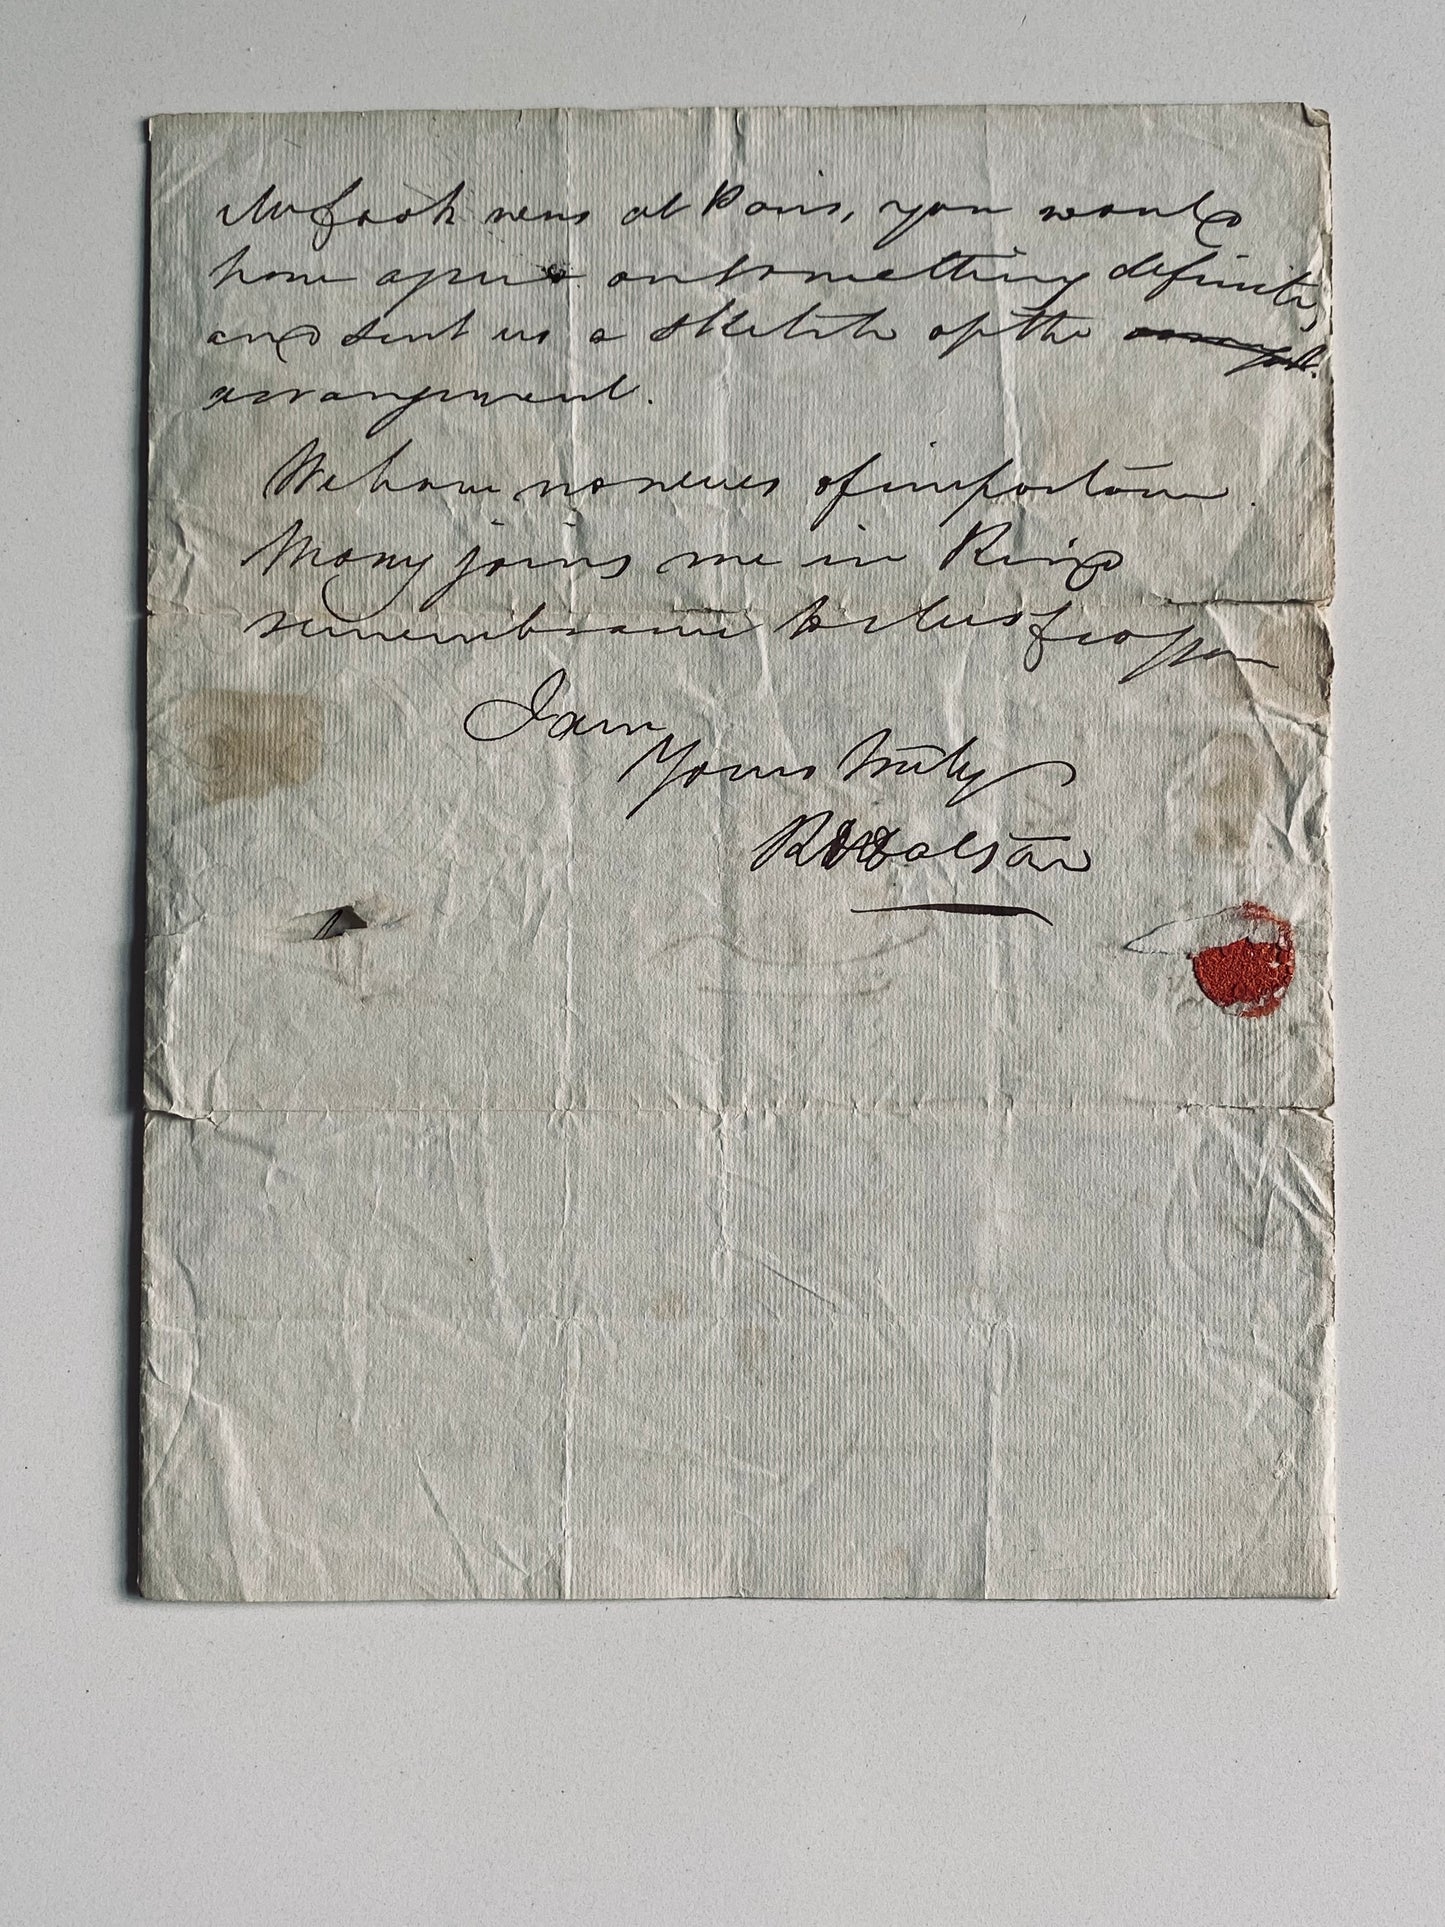 Mr Cook were at Paris, you would
have agreed on something definite,
and sent us a sketch of the
arrangement.
We have no news of importance.
Mary joins me in Kind
remembrance to
I am
Yours truly
R Ralston